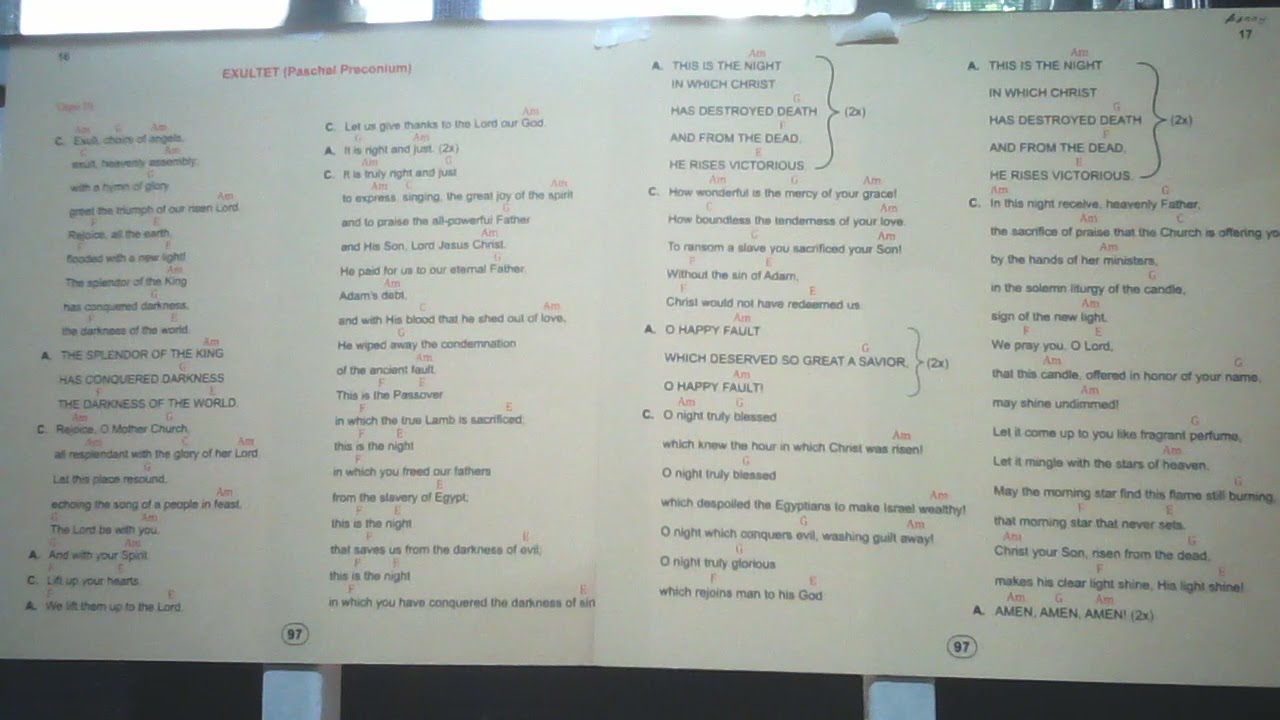 16
EXULTET (Paschal Preconium)
Capo IV
Am G Am
C. Exult, choirs of angels,
C Am
exult, heavenly assembly,
G
with a hymn of glory
Am
greet the triumph of our risen Lord.
F E
Rejoice, all the earth,
F E
flooded with a new light!
Am
The splendor of the King
G
has conquered darkness,
F E
the darkness of the world.
Am
A. THE SPLENDOR OF THE KING
G
HAS CONQUERED DARKNESS
F E
THE DARKNESS OF THE WORLD.
Am G
C. Rejoice, O Mother Church,
Am C Am
all resplendant with the glory of her Lord.
G
Let this place resound,
Am
echoing the song of a people in feast.
G Am
The Lord be with you.
G Am
A. And with your Spirit.
F E
C. Lift up your hearts.
F E
A. We lift them up to the Lord.
97
Am
C. Let us give thanks to the Lord our God.
G Am
A. It is right and just. (2x)
Am G
C. It is truly right and just
Am C Am
to express, singing, the great joy of the spirit
G
and to praise the all-powerful Father
Am
and His Son, Lord Jesus Christ.
G
He paid for us to our eternal Father
Am
Adam's debt,
C Am
and with His blood that he shed out of love,
G
He wiped away the condemnation
Am
of the ancient fault.
F E
This is the Passover
F E
in which the true Lamb is sacrificed;
F E
this is the night
F
in which you freed our fathers
E
from the slavery of Egypt;
F E
this is the night
F E
that saves us from the darkness of evil;
F E
this is the night
F E
in which you have conquered the darkness of sin
Am
A. THIS IS THE NIGHT
IN WHICH CHRIST
G
HAS DESTROYED DEATH (2x)
F
AND FROM THE DEAD,
E
HE RISES VICTORIOUS.
Am G Am
C. How wonderful is the mercy of your grace!
C Am
How boundless the tenderness of your love.
C Am
To ransom a slave you sacrificed your Son!
F E
Without the sin of Adam,
F E
Christ would not have redeemed us.
Am
A. O HAPPY FAULT
G
WHICH DESERVED SO GREAT A SAVIOR, (2x)
Am
O HAPPY FAULT!
Am G
C. O night truly blessed
Am
which knew the hour in which Christ was risen!
G
O night truly blessed
Am
which despoiled the Egyptians to make Israel wealthy!
G Am
O night which conquers evil, washing guilt away!
G
O night truly glorious
F E
which rejoins man to his God
17
Am
A. THIS IS THE NIGHT
IN WHICH CHRIST
G
HAS DESTROYED DEATH (2x)
F
AND FROM THE DEAD,
E
HE RISES VICTORIOUS.
Am G
C. In this night receive, heavenly Father,
Am C
the sacrifice of praise that the Church is offering yo
Am
by the hands of her ministers,
G
in the solemn liturgy of the candle,
Am
sign of the new light.
F E
We pray you, O Lord,
Am G
that this candle, offered in honor of your name,
Am
may shine undimmed!
G
Let it come up to you like fragrant perfume,
Am
Let it mingle with the stars of heaven.
G
May the morning star find this flame still burning,
F E
that morning star that never sets.
Am G
Christ your Son, risen from the dead,
F E
makes his clear light shine, His light shine!
Am G Am
A. AMEN, AMEN, AMEN! (2x)
97